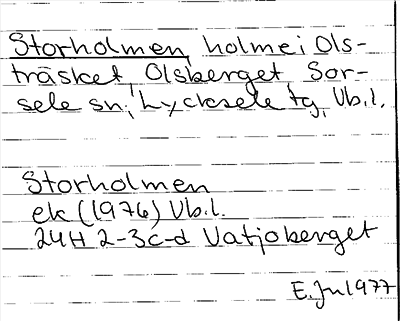 Storholmen, holme i Ols-
träsket, Olsberget, Sor-
sele sn, Lycksele tg, Vb.l.
Storholmen
ek (1976) Vb.l.
24H 2-3c-d Vatjoberget
E. Ju 1977